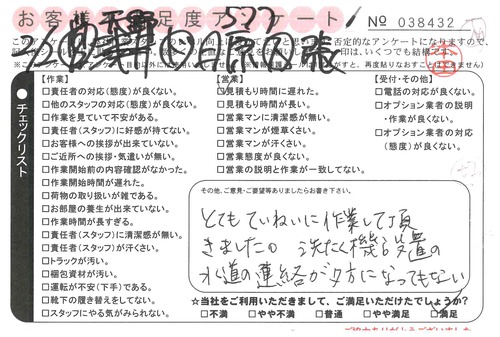 お客様満足度アンケート
No 038432
【作業】
□責任者の対応(態度)が良くない。
□他のスタッフの対応(態度)が良くない。
□作業を見ていて不安がある。
□責任者(スタッフ)に好感が持てない。
□お客様への挨拶が出来ていない。
□ご近所への挨拶・気遣いが無い。
□作業開始前の内容確認がなかった。
□作業開始時間が遅れた。
□荷物の取り扱いが雑である。
□お部屋の養生が出来ていない。
□作業時間が長すぎる。
□責任者(スタッフ)に清潔感が無い。
□責任者(スタッフ)が汗くさい。
□トラックが汚い。
□梱包資材が汚い。
□運転が不安(下手)である。
□靴下の履き替えをしてない。
□スタッフにやる気がみられない。
【営業】
□見積もり時間に遅れた。
□見積もり時間が長い。
□営業マンに清潔感が無い。
□営業マンが煙草くさい。
□営業マンが汗くさい。
□営業態度が良くない。
□営業の説明と作業が一致してない。
【受付・その他】
□電話の対応が良くない。
□オプション業者の説明・作業が良くない。
□オプション業者の対応(態度)が良くない。
チェックリスト
その他、ご意見・ご要望等ありましたらお書き下さい。
とてもていねいに作業して頂
きました。洗たく機設置の
水道の連絡が夕方になってもない
☆当社をご利用いただきまして、ご満足いただけたでしょうか?
□不満 □やや不満 □普通 □やや満足 □満足
ご協力ありがとうございました